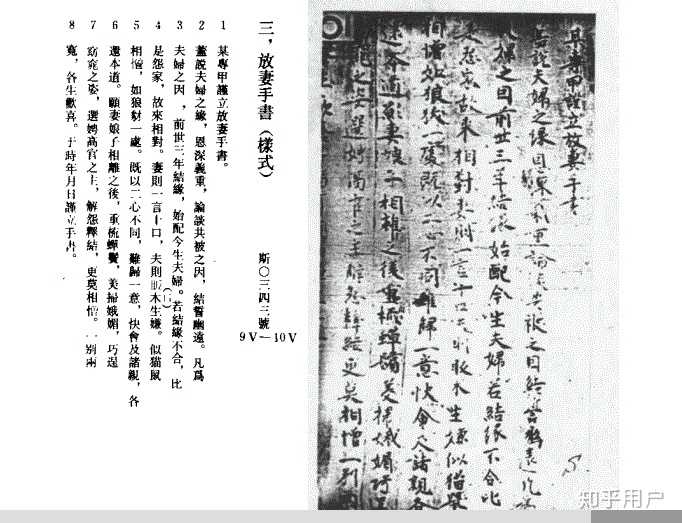 三，放妻手書（樣式）
斯〇三四三號
9V—10V
1 某專甲謹立放妻手書。
2 蓋説夫婦之緣，恩深義重，論談共被之因，結誓幽遠。凡爲
3 夫婦之因，前世三年結緣，始配今生夫婦。若結緣不合，比
4 是怨家，故來相對。妻則一言十口，夫則販木（一）生嫌。似猫鼠
5 相憎，如狼豺一處。既以二心不同，難歸一意，快會及諸親，各
6 還本道。願妻娘子相離之後，重梳蟬鬢，美掃娥媚，巧逞
7 窈窕之姿，選娉高官之主，解怨釋結，更莫相憎。一別兩
8 寬，各生歡喜。于時年月日謹立手書。
某專甲謹立放妻手書
蓋說夫婦之緣恩深義重論談共被之因結誓幽遠凡
夫婦之因前世三年結緣始配今生夫婦若結緣不合比
是怨家故來相對妻則一言十口夫則販木生嫌似猫鼠
相憎如狼犲一處既以二心不同難歸一意快會及諸親各
還本道願妻娘子相離之後重梳蟬鬢美掃娥媚巧逞
窕之姿選娉高官之主解怨釋結更莫相憎一別
知乎用户